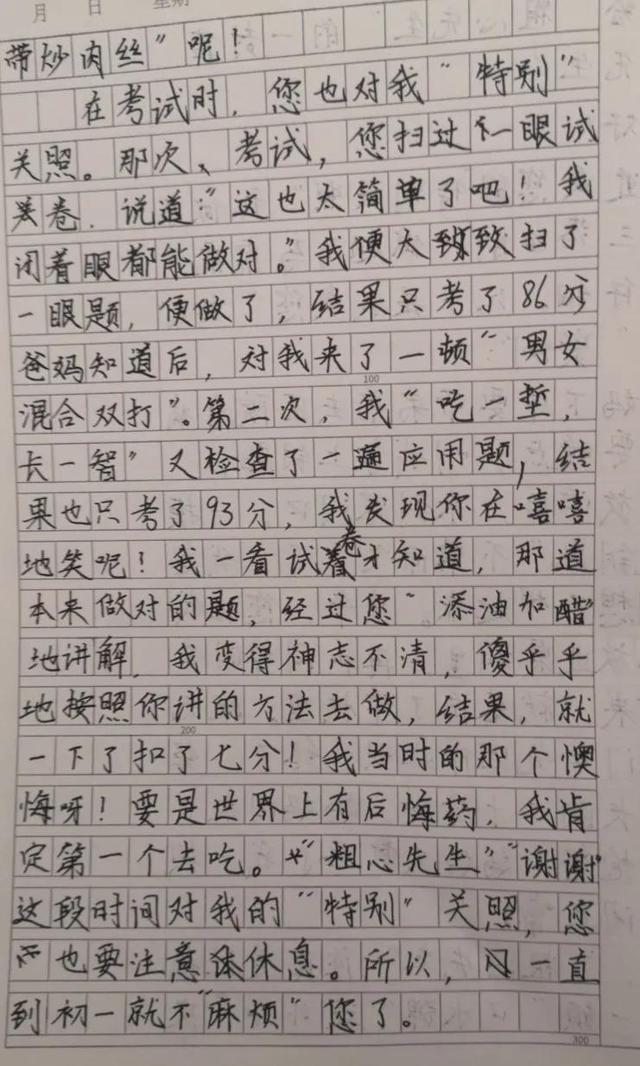 月 日 星期
带炒肉丝”呢！
在考试时，您也对我“特别”
关照。那次、考试，您扫过一眼试
卷，说道：“这也太简单了吧！我
闭着眼都能做对。”我便大致致扫了
一眼题，便做了，结果只考了86分
爸妈知道后，对我来了一顿“男女
100
混合双打”。第二次，我“吃一堑，
长一智”又检查了一遍应用题，结
果也只考了93分，我发现你在嘻嘻
地笑呢！我一看试卷才知道，那道
本来做对的题，经过您“添油加醋”
地讲解，我变得神志不清，傻乎乎
地按照你讲的方法去做，结果，就
200
一下了扣了七分！我当时的那个懊
悔呀！要是世界上有后悔药，我肯
定第一个去吃。“粗心先生”“谢谢”
这段时间对我的“特别”关照，您
也要注意休息。所以，一直
到初一就不“麻烦”您了。
300